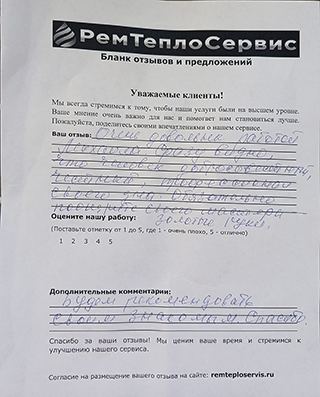 РемТеплоСервис
Бланк отзывов и предложений
Уважаемые клиенты!
Мы всегда стремимся к тому, чтобы наши услуги были на высшем уровне.
Ваше мнение очень важно для нас и помогает нам становиться лучше.
Пожалуйста, поделитесь своими впечатлениями о нашем сервисе.
Ваш отзыв: Очень довольны работой
Михаила сразу видно,
что человек
честный,
своего дела. Обязательно
своего мастера
Оцените нашу работу: золотые руки.
(Поставьте отметку от 1 до 5, где 1 - очень плохо, 5 - отлично)
1 2 3 4 5
Дополнительные комментарии:
Будем рекомендовать
своим знакомым Спасибо
Спасибо за ваши отзывы! Мы ценим ваше время и стремимся к
улучшению нашего сервиса.
Согласие на размещение вашего отзыва на сайте: remteploservis.ru